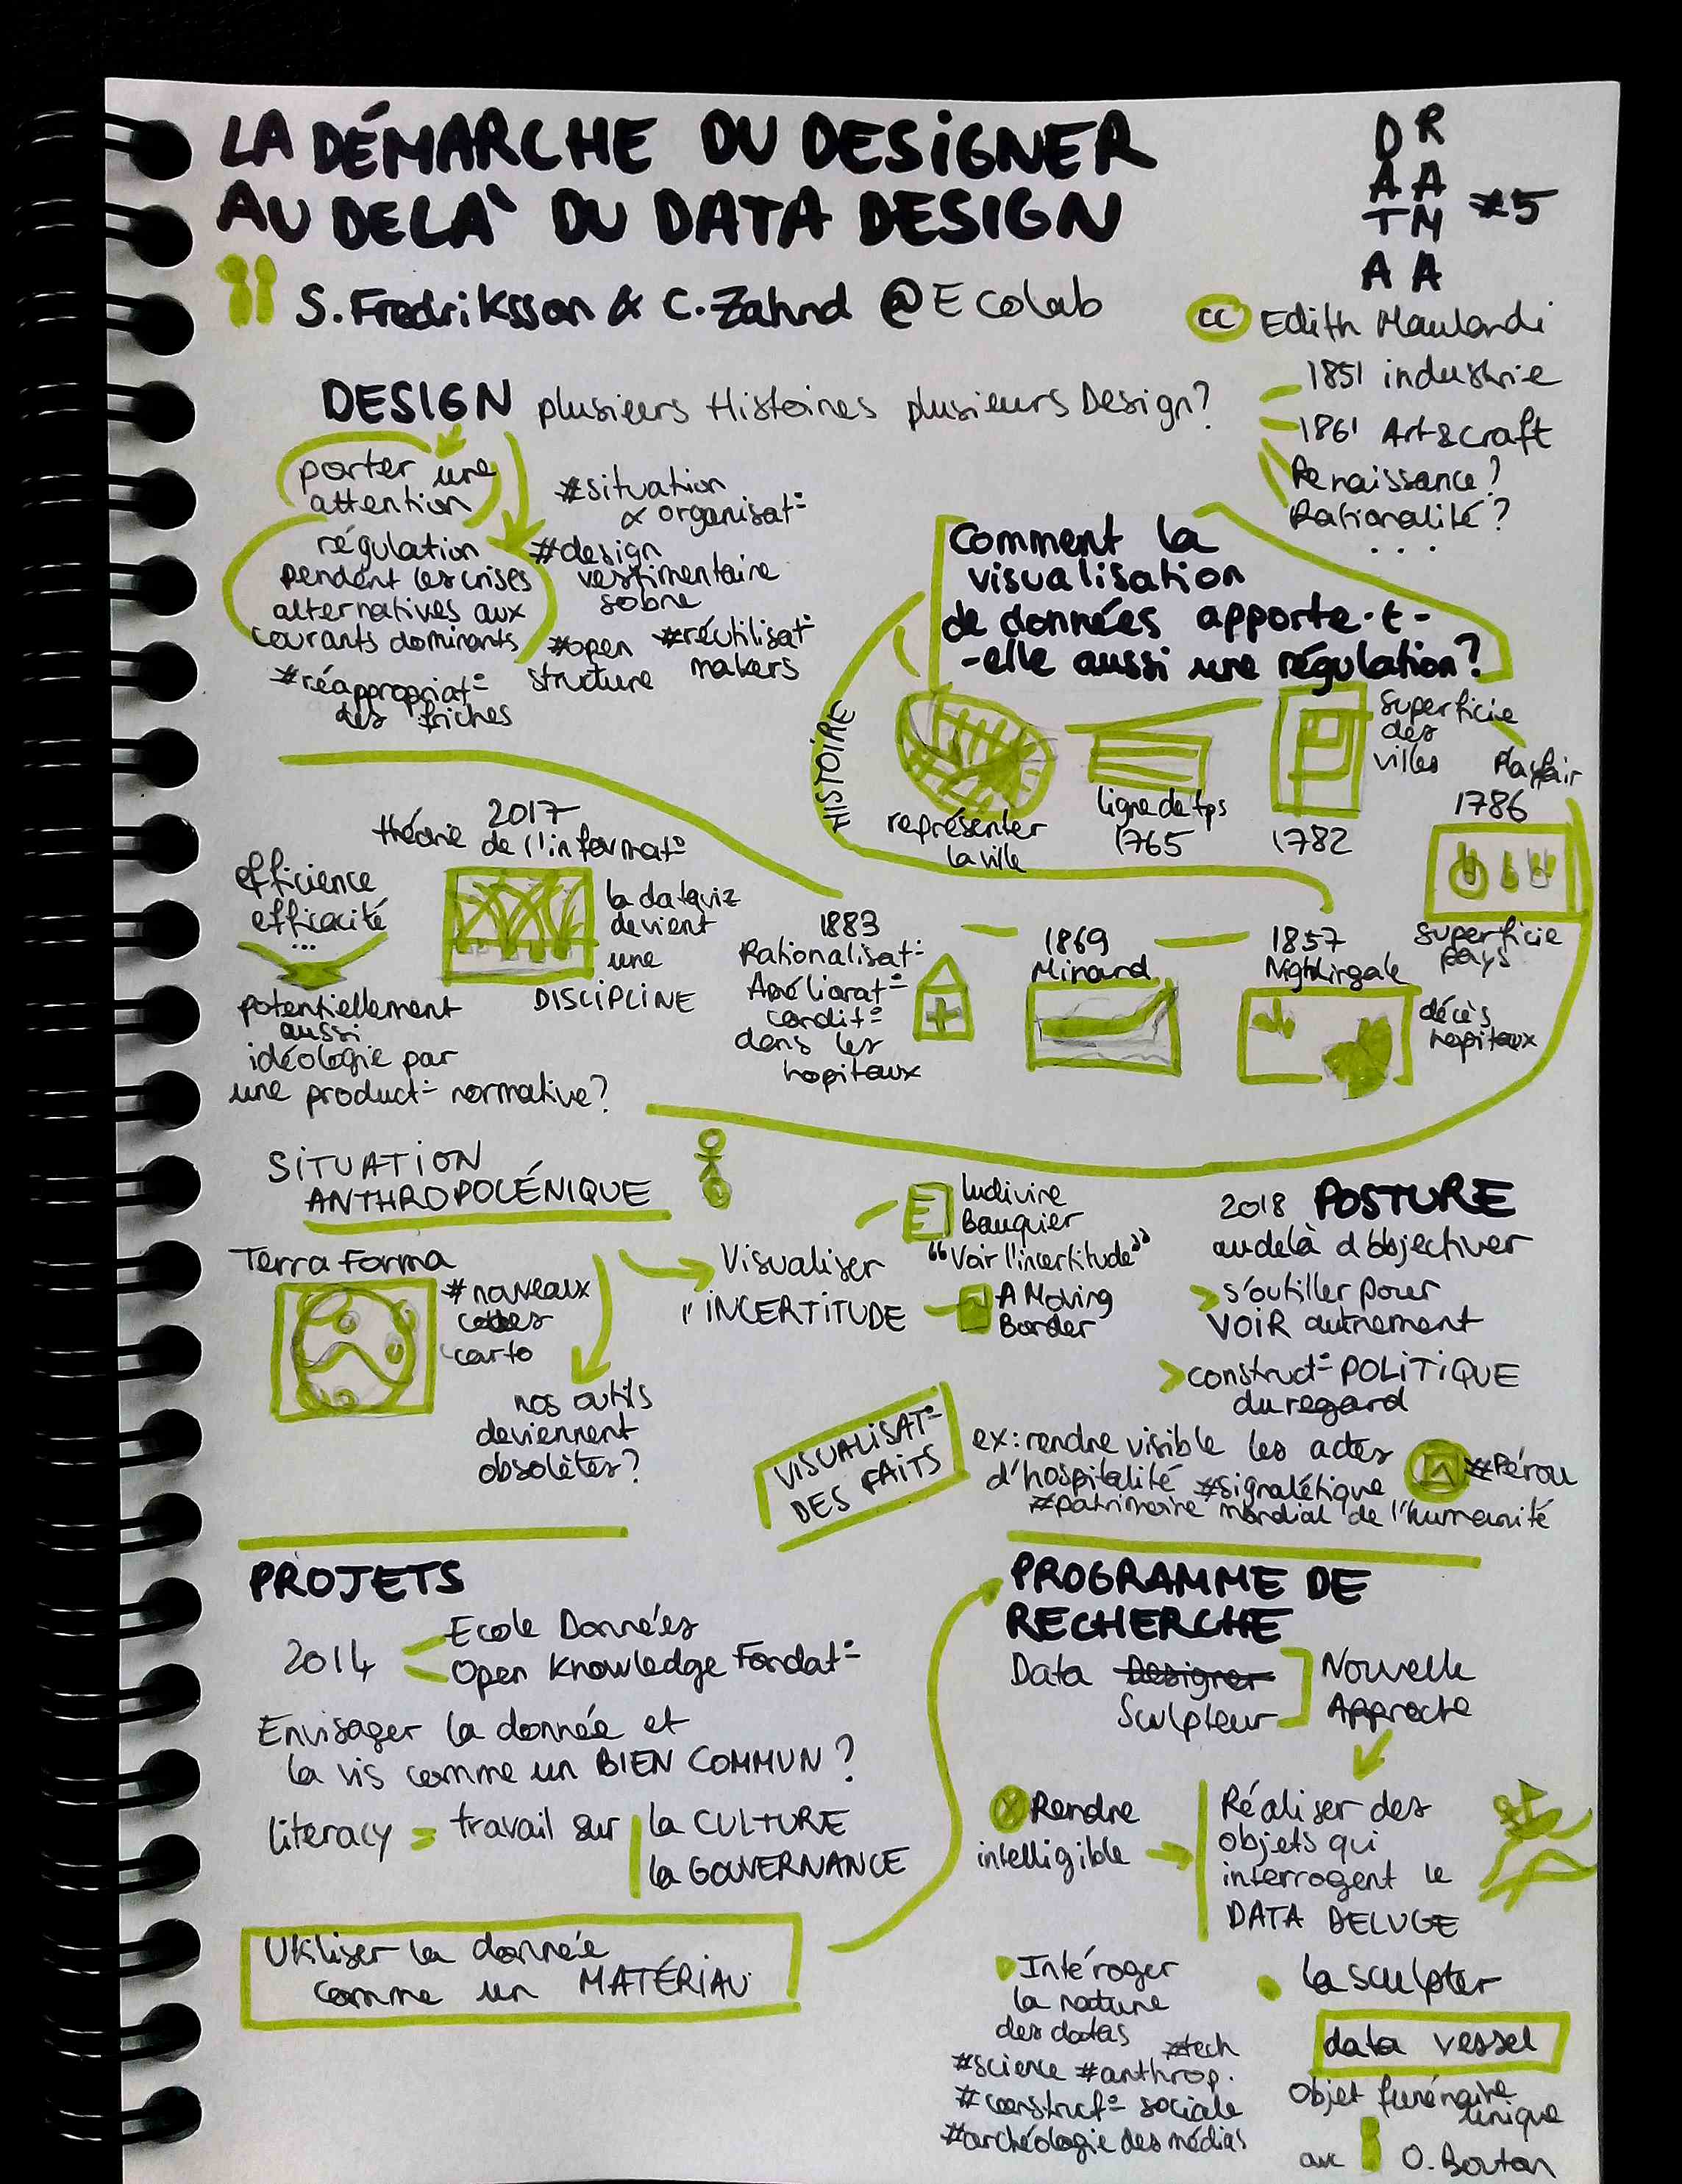 LA DÉMARCHE DU DESIGNER
AU DELÀ DU DATA DESIGN
DATA
DRAMA
#5
S. Fredriksson & C. Zahnd @Ecolab
cc Edith Maulandi
DESIGN plusieurs Histoires plusieurs Design?
1851 industrie
1861 Art & craft
Renaissance?
Rationalité?
...
porter une
attention
régulation
pendant les crises
alternatives aux
courants dominants
#réappropriat°
des friches
#situation
& organisat°
#design
vestimentaire
sobre
#open
structure
#réutilisat°
makers
Comment la
visualisation
de données apporte-t-
-elle aussi une régulation?
HISTOIRE
représenter
la ville
ligne de tps
1765
superficie
des
villes
1782
Playfair
1786
superficie
pays
1857
Nightingale
décès
hopitaux
1869
Minard
1883
Rationalisat°
Améliorat°
condit°
dans les
hopitaux
2017
théorie de l'informat°
la dataviz
devient
une
DISCIPLINE
efficience
efficacité
...
potentiellement
aussi
idéologie par
une product° normative?
SITUATION
ANTHROPOCÉNIQUE
Terra Forma
#nouveaux
codes
carto
nos outils
deviennent
obsolètes?
Visualiser
l'INCERTITUDE
ludivine
Bauquier
"Voir l'incertitude"
A Moving
Border
2018 POSTURE
au delà d'objectiver
> s'outiller pour
VOIR autrement
> construct° POLITIQUE
du regard
VISUALISAT°
DES FAITS
ex: rendre visible les actes
d'hospitalité #signalétique #Pérou
#patrimoine mondial de l'humanité
PROJETS
2014
Ecole Données
Open Knowledge Fondat°
Envisager la donnée et
la vis comme un BIEN COMMUN?
literacy = travail sur
la CULTURE
la GOUVERNANCE
Utiliser la donnée
comme un MATÉRIAU
PROGRAMME DE
RECHERCHE
Data Designer
Sculpteur
Nouvelle
Approche
Rendre
intelligible
Réaliser des
objets qui
interrogent le
DATA DELUGE
Intéroger
la nature
des datas
#tech
#science #anthrop.
#construct° sociale
#archéologie des médias
la sculpter
data vessel
Objet funéraire
unique
avec O. Bouton